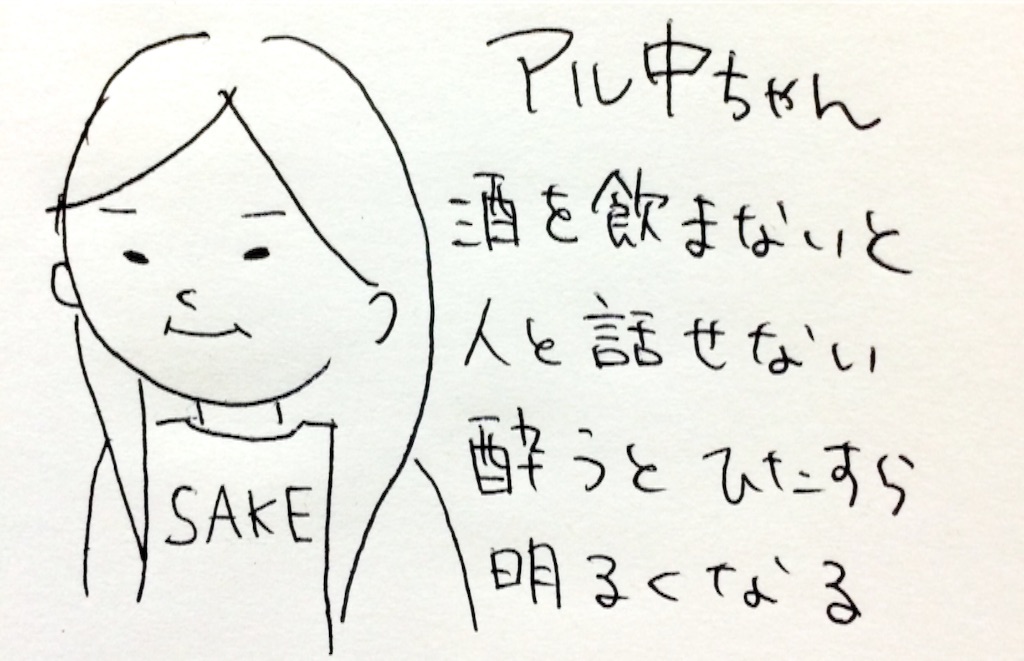 アル中ちゃん
酒を飲まないと
人と話せない
酔うとひたすら
明るくなる
SAKE